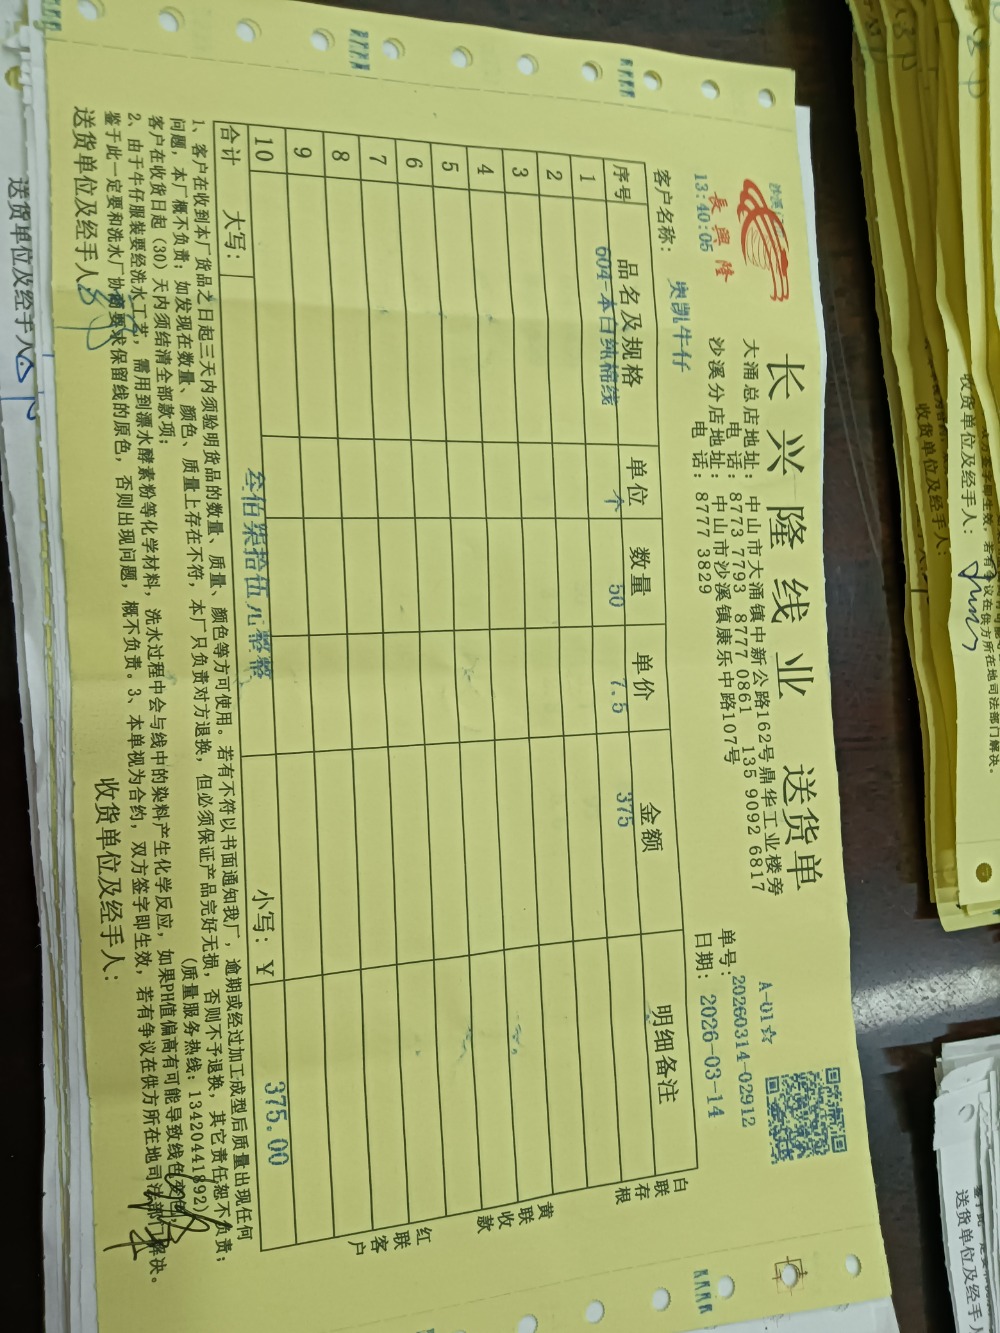 长兴隆线业 送货单
長興隆
13:40:05
大涌总店地址：中山市大涌镇中新公路162号鼎华工业楼旁
电 话：8773 7793 8777 0861 135 9092 6817
沙溪分店地址：中山市沙溪镇康乐中路107号
电 话：8777 3829
A-01☆
单号：20260314-02912
日期：2026-03-14
客户名称： 奥凯牛仔
序号 品名及规格 单位 数量 单价 金额 明细备注
1 604-本白纯棉线 个 50 7.5 375
2
3
4
5
6
7
8
9
10
合计 大写： 叁佰柒拾伍元整整 小写：￥ 375.00
白联存根
黄联收款
红联客户
1、客户在收到本厂货品之日起三天内须验明货品的数量、质量、颜色等方可使用。若有不符以书面通知我厂，逾期或经过加工成型后质量出现任何
问题，本厂概不负责；如发现在数量、颜色、质量上存在不符，本厂只负责对方退换，但必须保证产品完好无损，否则不予退换，其它责任恕不负责；
客户在收货日起（30）天内须结清全部款项； （质量服务热线：13420441892）
2、由于牛仔服装要经洗水工艺，需用到漂水酵素粉等化学材料，洗水过程中会与线中的染料产生化学反应，如果PH值偏高有可能导致线色变色，
鉴于此一定要和洗水厂协商要求保留线的原色，否则出现问题，概不负责。3、本单视为合约，双方签字即生效，若有争议在供方所在地司法部门解决。
送货单位及经手人： 收货单位及经手人：
送货单位及经手人
收货单位及经手人：
收货单位及经手人：
送货单位及经手人